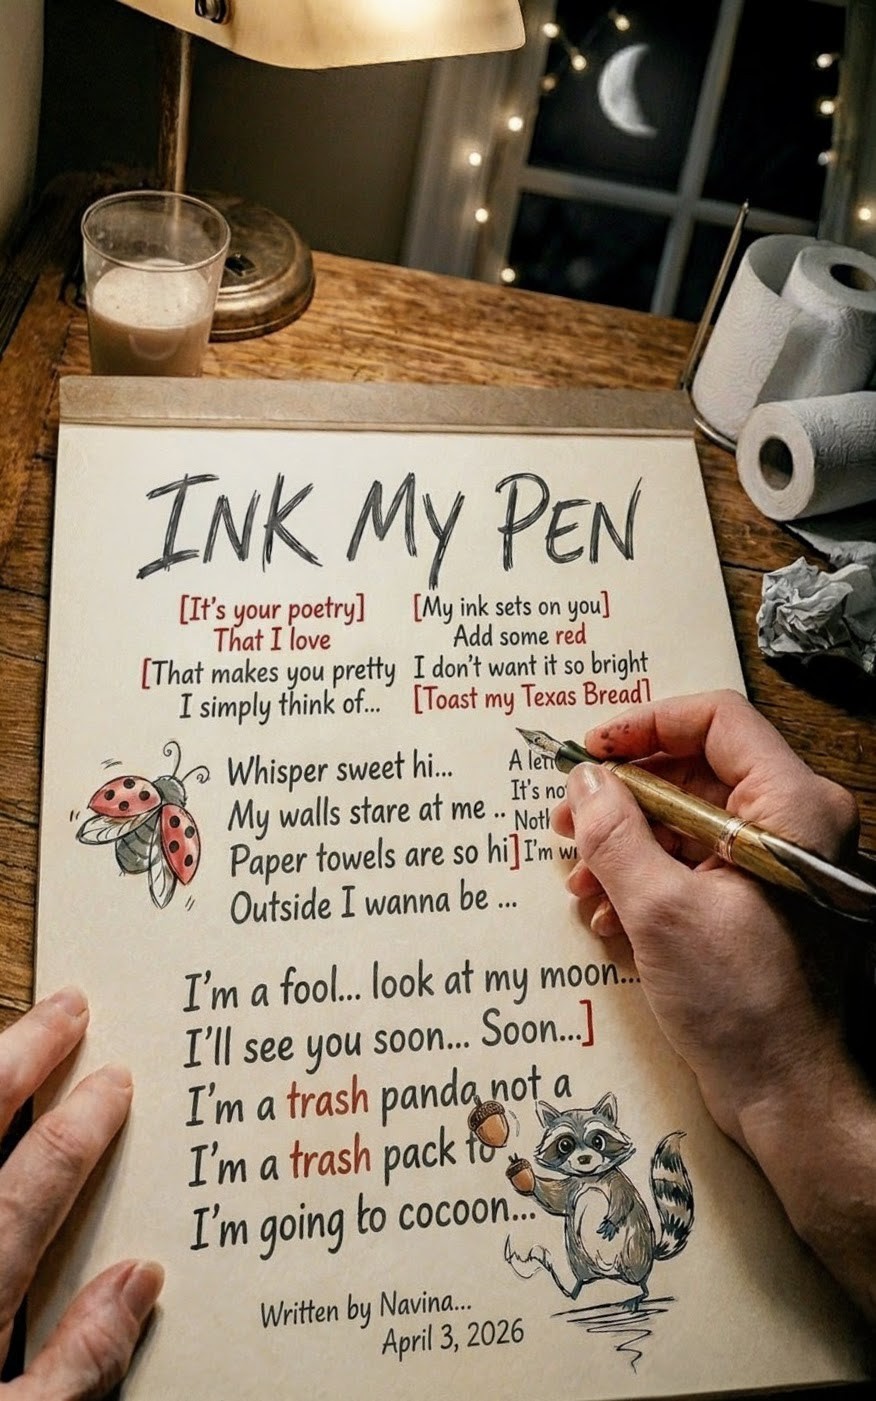 INK MY PEN
[It's your poetry]
That I love
[That makes you pretty
I simply think of...
[My ink sets on you]
Add some red
I don't want it so bright
[Toast my Texas Bread]
Whisper sweet hi...
My walls stare at me ..
Paper towels are so hi]
Outside I wanna be ...
A
It's
I'm
I'm a fool... look at my moon...
I'll see you soon... Soon...]
I'm a trash panda not a
I'm a trash pack to
I'm going to cocoon...
Written by Navina...
April 3, 2026